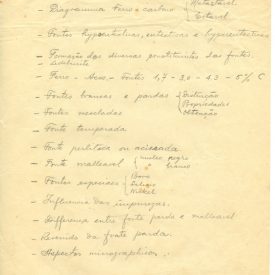 Metastável
— Diagramma Ferro-carbono
Estavel
— Fontes hypoeutecticas, eutecticas e hypereutecticas
— Formação dos diversos constituintes das fontes
— Ferro - Aços - Fontes 1,7 - 3,0 - 4,3 - 5% C
— Fontes brancas e pardas Distincção
Propriedades
Obtenção
— Fontes mescladas
— Fonte temperada
— Fonte ou acierada
— Fonte malleavel nucleo negro
" branco
— Fontes especiaes Boro
Silicio
Nickel
— Influencia das impurezas.
— Differença entre fonte parda e malleavel
— Revenido da fonte parda.
— Aspectos micrographicos.